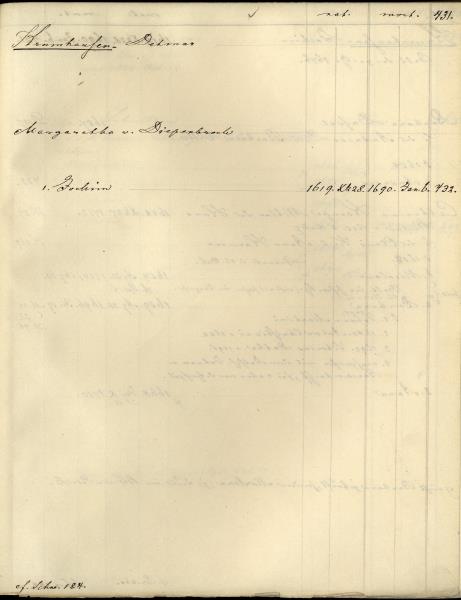 nat. mort. 431.
Krumhausen. Detmar
Margaretha v. Diepenbrock
1. Jochim 1619. 1690. Jan. 6. 432.
cf. Schr. 124.